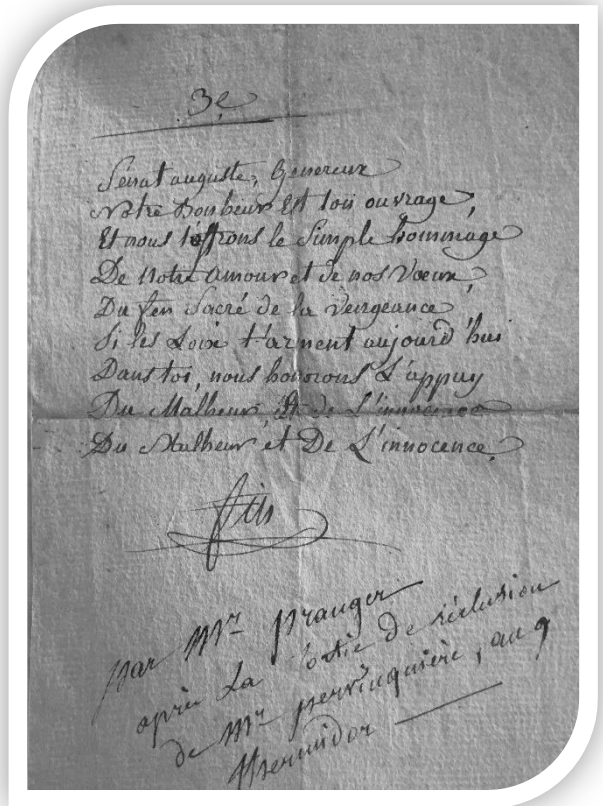 3e
Sénat auguste, Genereux
Notre Bonheur Est ton ouvrage,
Et nous t'offrons le Simple hommage
De notre amour et de nos Vœux,
Du feu Sacré de la Vengeance,
Si les Loix t'arment aujourd'hui
Dans toi, nous honorons L'appuy
Du Malheur, et de L'innocence
Du Malheur et De L'innocence.
fin
par Mr pranger
après La Sortie De réclusion
de Mr perrinquiere, au 9
thermidor